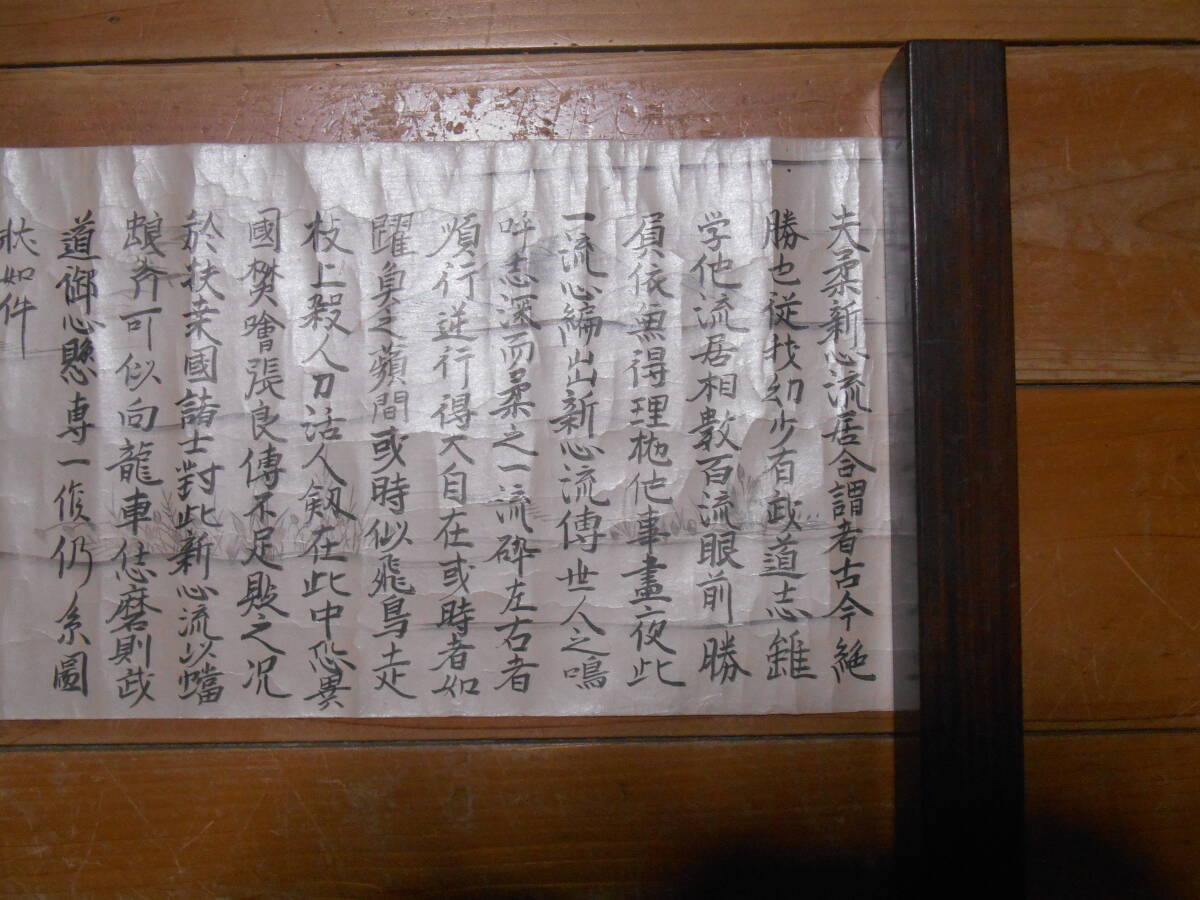 夫柔新心流居合謂者古今絶
勝也従我幼少有武道志雖
学他流居相数百流眼前勝
負依無得理抛他事晝夜此
一流心編出新心流傳世人之鳴
呼志深而柔之一流砕左右者
順行逆行得大自在或時者如
躍魚之蘋間或時似飛鳥走
枝上殺人刀活人劔在此中恐異
國樊噲張良傳不足敗之况
於扶桒國諸士對此新心流以蟷
蜋斧可似向龍車恠磨則武
道御心懸専一候仍系圖
状如件